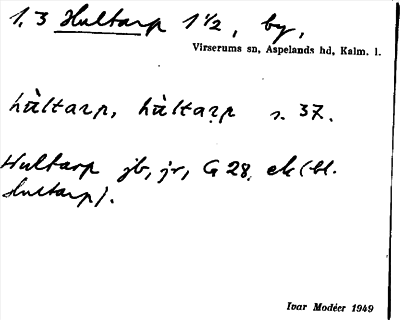 1, 3 Hultarp 1 1/2, by,
Virserums sn, Aspelands hd, Kalm. l.
hùltarp, hùltarp s. 37.
Hultarp jb, jr, G 28, ek (bl.
Hultarp).
Ivar Modéer 1949